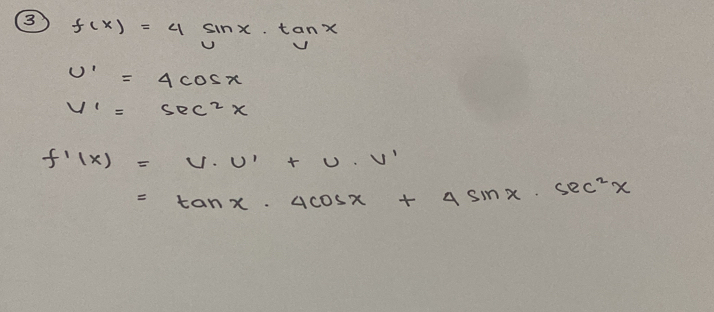 ③ f(x) = 4 sinx . tanx
U V
U' = 4 cosx
V' = sec²x
f'(x) = V. U' + U. V'
= tanx . 4cosx + 4 sinx . sec²x